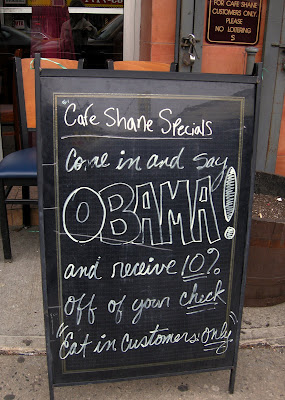 FOR CAFE SHANE
CUSTOMERS ONLY.
PLEASE
NO LOITERING
Cafe Shane Specials
Come in and say
OBAMA!
and receive 10%
off of your check
"Eat in customers only"